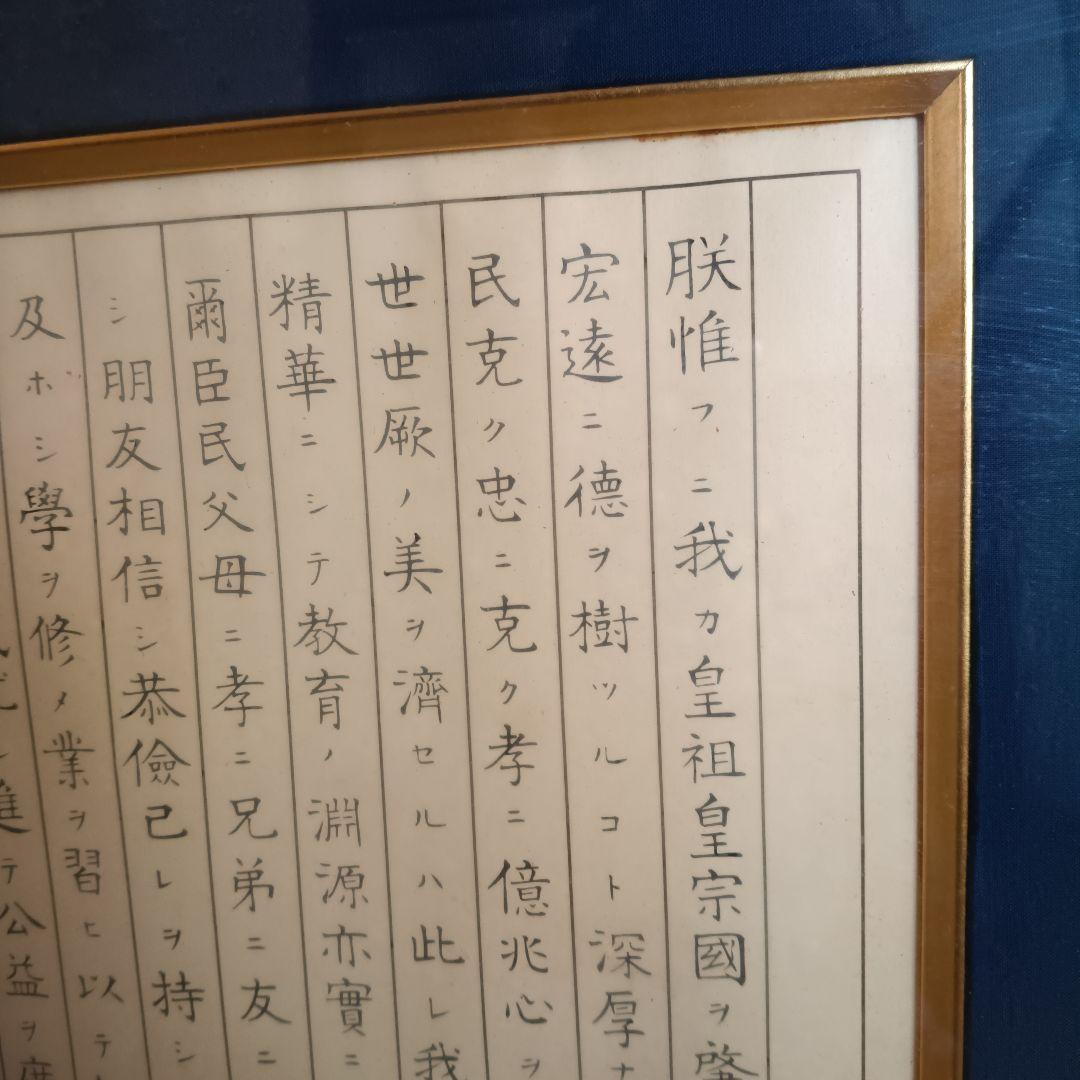 朕惟フニ我カ皇祖皇宗國ヲ肇
宏遠ニ德ヲ樹ツルコト深厚ナ
民克ク忠ニ克ク孝ニ億兆心ヲ
世世厥ノ美ヲ濟セルハ此レ我
精華ニシテ教育ノ淵源亦實ニ
爾臣民父母ニ孝ニ兄弟ニ友ニ
シ朋友相信シ恭儉己レヲ持シ
及ホシ學ヲ修メ業ヲ習ヒ以テ
進テ公益ヲ廣